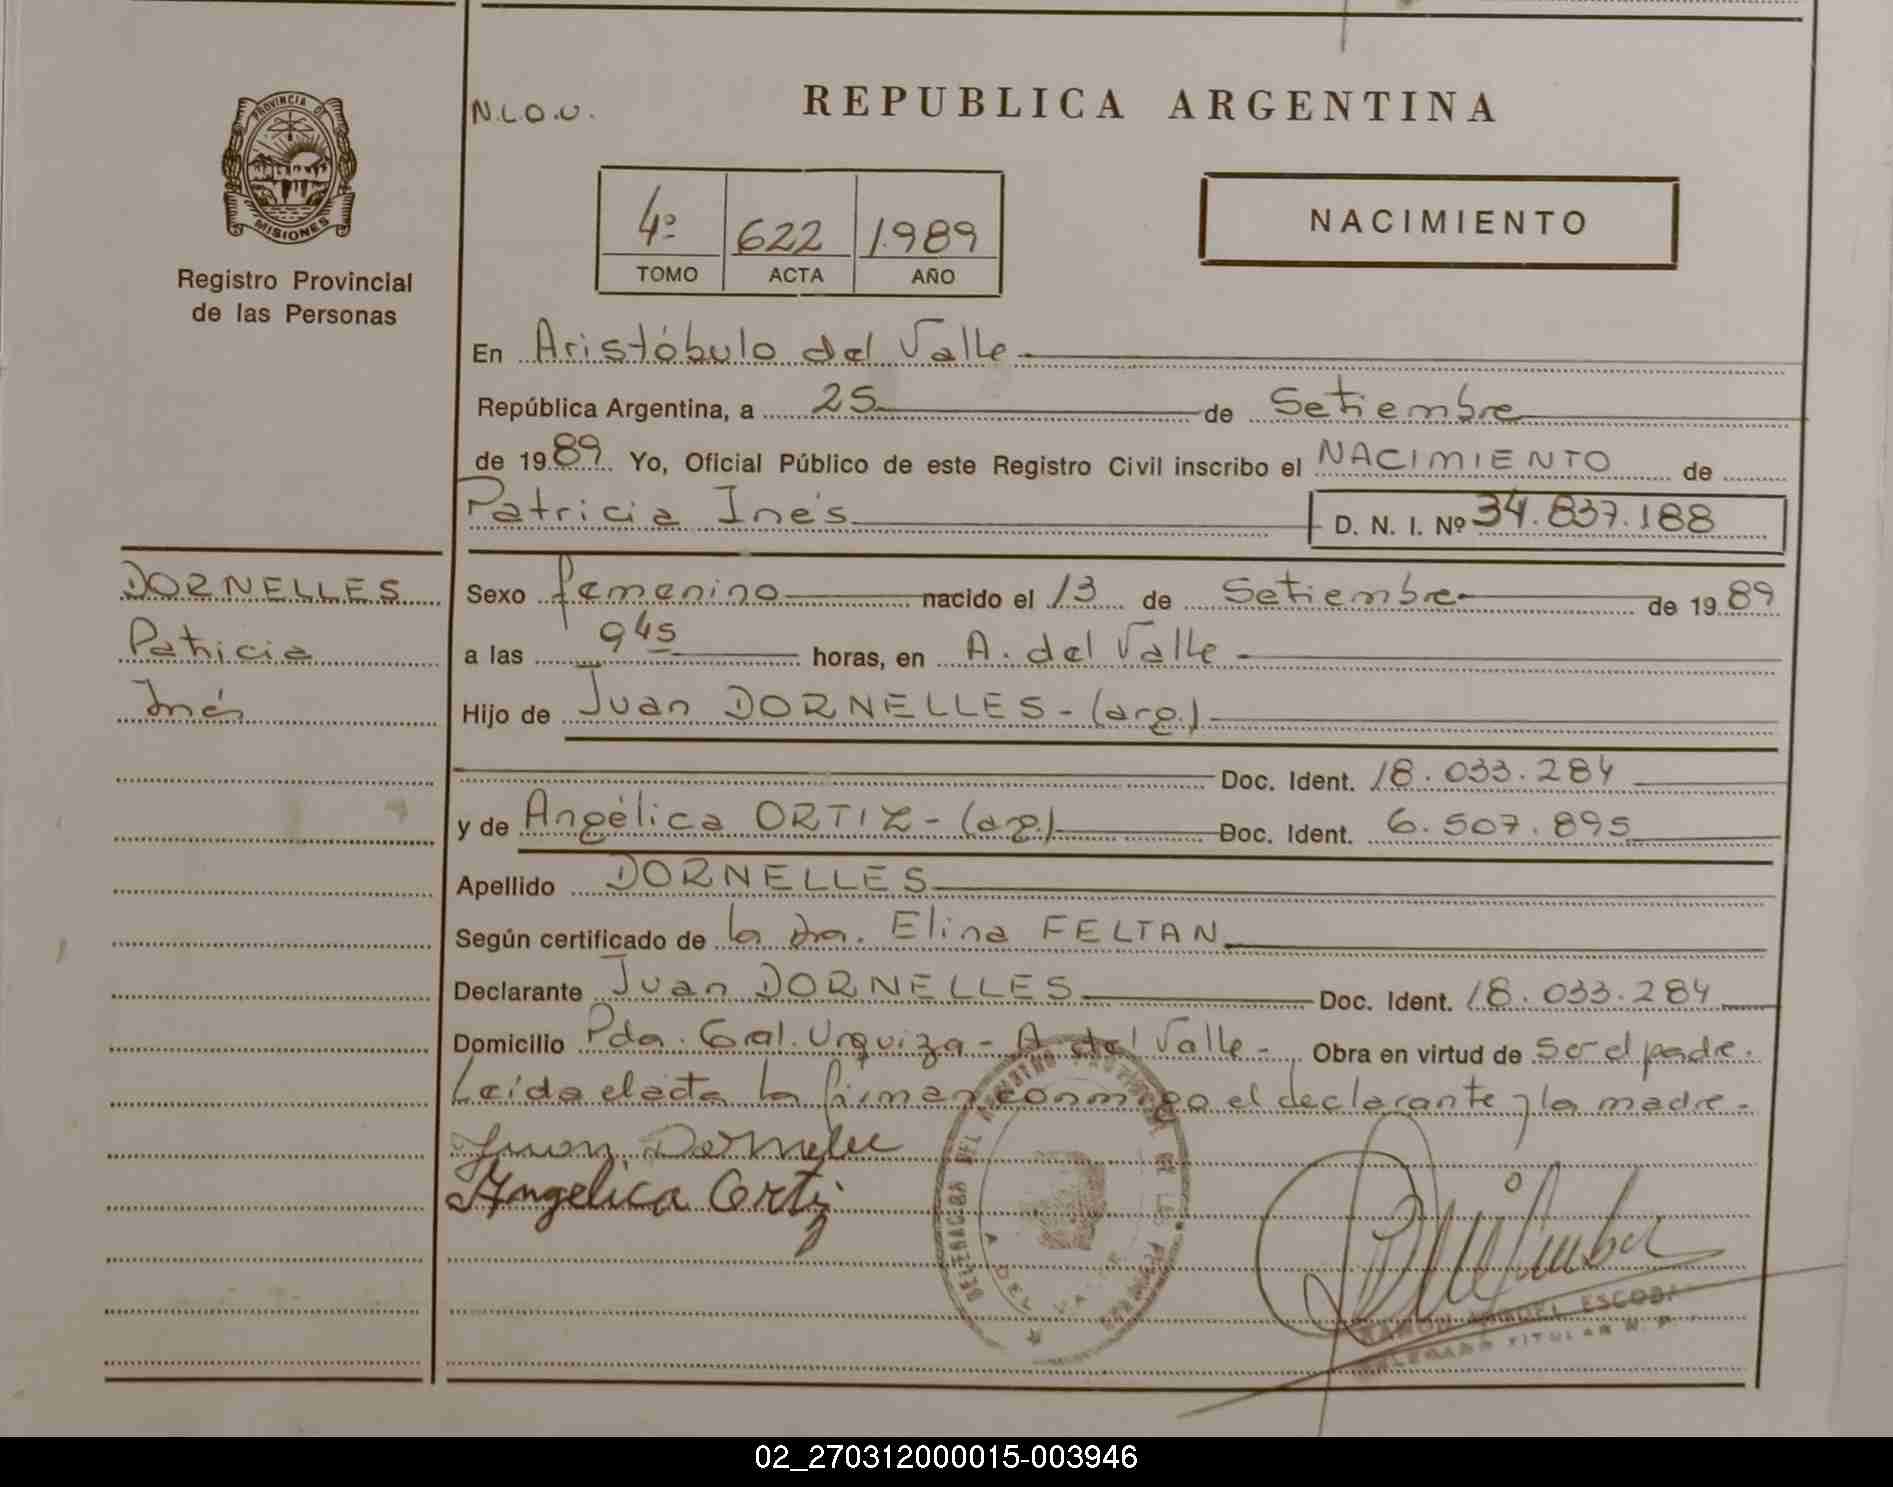 PROVINCIA DE
MISIONES
Registro Provincial
de las Personas
N.L.O.U.
REPUBLICA ARGENTINA
4º 622 1989
TOMO ACTA AÑO
NACIMIENTO
En Aristóbulo del Valle
República Argentina, a 25 de Setiembre
de 1989 Yo, Oficial Público de este Registro Civil inscribo el NACIMIENTO de
Patricia Inés D. N. I. Nº 34.837.188
DORNELLES
Patricia
Inés
Sexo femenino nacido el 13 de Setiembre de 1989
a las 9 45 horas, en A. del Valle
Hijo de Juan DORNELLES - (arg.)
Doc. Ident. 18.033.284
y de Angélica ORTIZ - (arg.) Doc. Ident. 6.507.895
Apellido DORNELLES
Según certificado de la Dra. Elina FELTAN
Declarante Juan DORNELLES Doc. Ident. 18.033.284
Domicilio Pda. Gral. Urquiza - A del Valle - Obra en virtud de ser el padre.
Leída el acta la firman conmigo el declarante y la madre -
Juan Dornelle
Angelica Ortiz
DELEGACION DEL REGISTRO PROVINCIAL DE LAS PERSONAS
A. DEL VALLE
RAMON MIGUEL ESCOBAR
DELEGADO TITULAR R. P.
02_270312000015-003946